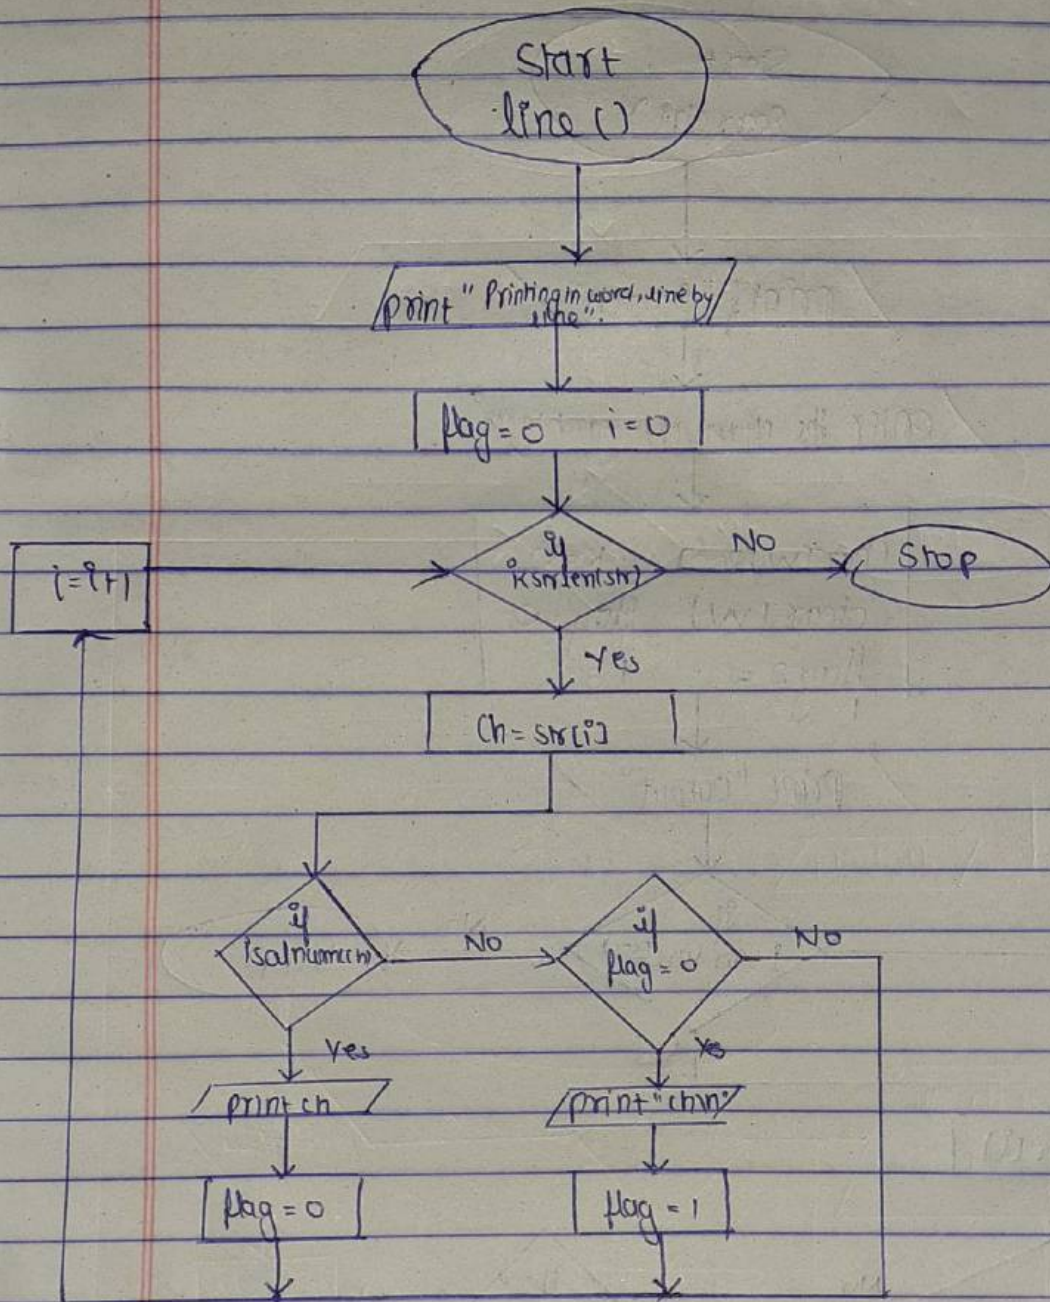 Start
line ()
print "Printing in word, line by
line".
flag = 0 i = 0
if
i<strlen(str)
NO
Stop
i = i+1
Yes
Ch = str[i]
if
isalnum(ch)
NO
if
flag = 0
NO
Yes
Yes
print ch
print "ch\n"
flag = 0
flag = 1